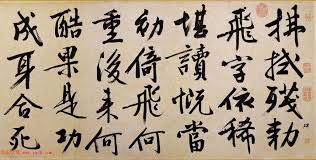 拂拭殘勅
飛字依稀
堪讀慨當
初倚飛何
重後來何
酷果是功
成身合死